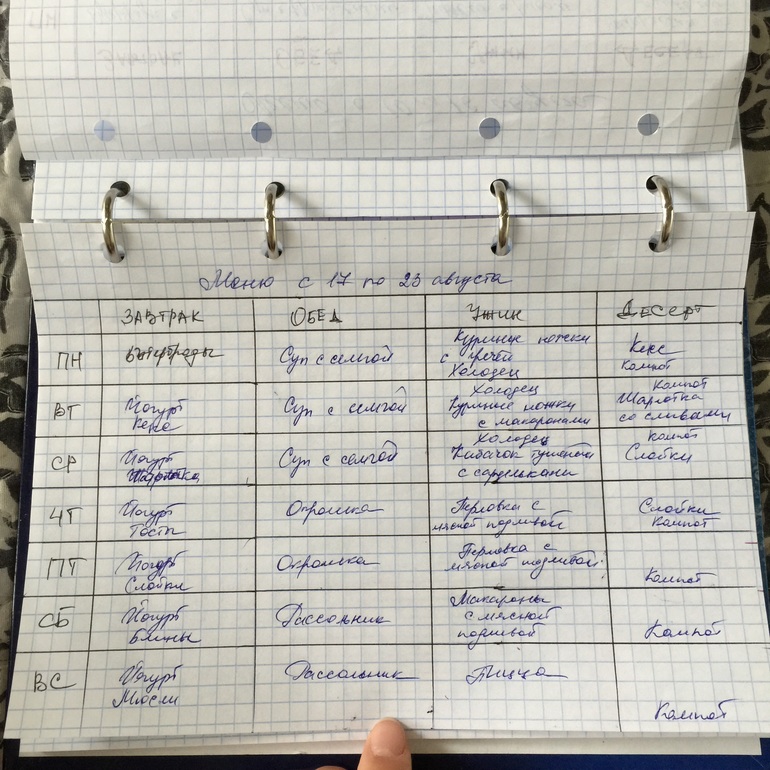 Меню с 17 по 23 августа
ЗАВТРАК ОБЕД УЖИН ДЕСЕРТ
ПН Бутерброды Суп с семгой Куриные ножки с гречей Холодец Кекс Компот
ВТ Йогурт Кекс Суп с семгой Холодец Куриные ножки с макаронами Компот Шарлотка со сливами
СР Йогурт Шарлотка Суп с семгой Холодец Кабачок тушеный с сардельками Компот Слойки
ЧТ Йогурт Тосты Окрошка Перловка с мясной подливой Слойки Компот
ПТ Йогурт Слойки Окрошка Перловка с мясной подливой Компот
СБ Йогурт Блины Рассольник Макароны с мясной подливой Компот
ВС Йогурт Мюсли Рассольник Пицца Компот